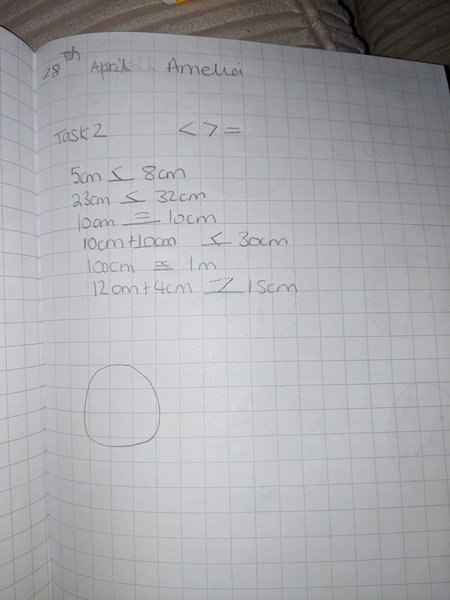 28th April Amelia
Task 2 < > =
5cm < 8cm
23cm < 32cm
10cm = 10cm
10cm+10cm < 30cm
100cm = 1m
12cm+4cm > 15cm